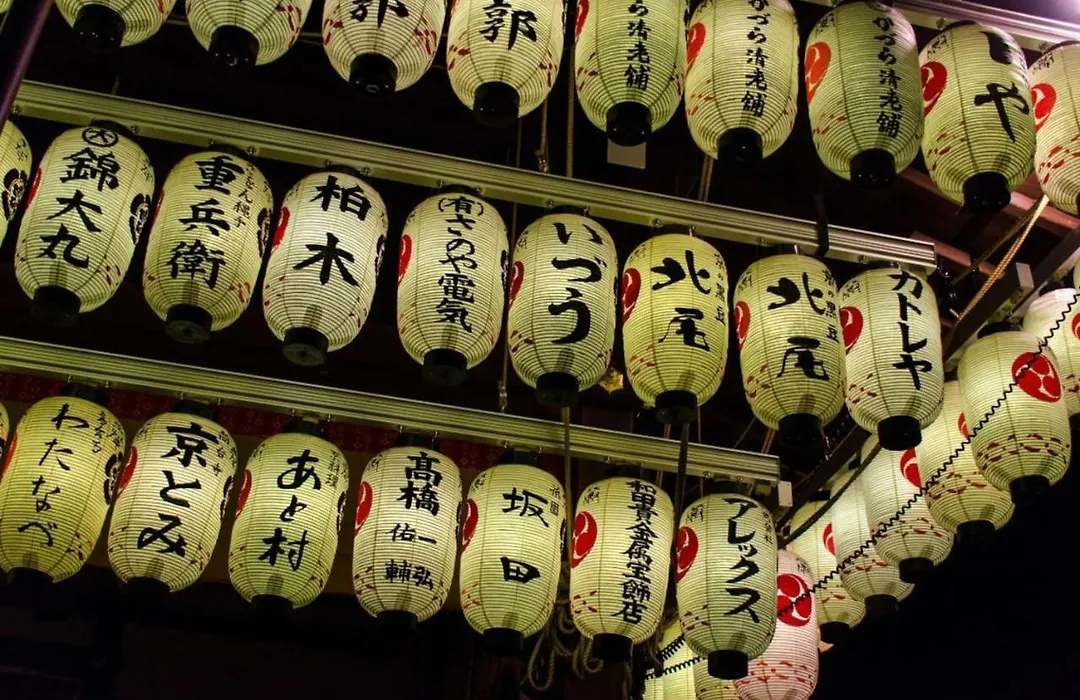 郭
ら清老舗
かづら清老舗
かづら清老舗
や
錦大丸
重兵衛
柏木
(有)さのや電気
いづう
黒豆
北尾
黒豆
北尾
カトレヤ
わたなべ
京とみ
料理
あと村
髙橋
佑一
輔弘
祇園
坂田
貴金属宝飾店
アレックス